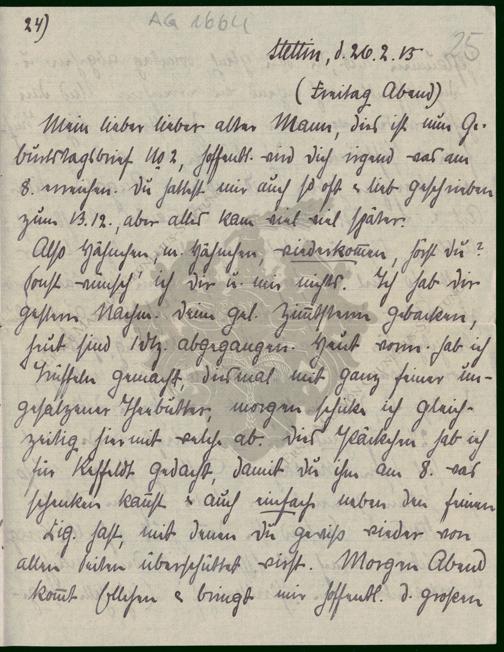 24)
AG 1664
25
Stettin, d. 26.2.15
(Freitag Abend)
Mein lieber lieber alter Mann, dies ist nun Ge-
burtstagsbrief No 2, hoffentl. wird dich irgend was am
8. erreichen. Du hattest mir auch so oft & lieb geschrieben
zum 13.12., aber alles kam viel viel später.
Also Hähnchen, m. Hähnchen, wiederkommen, hörst du?
sonst wünsch' ich dir u. mir nichts. Ich hab dir
gestern Nachm. deine gel. Zimtsterne gebacken,
heut sind 1 dtz. abgegangen. Heut vorm. hab ich
Trüffeln gemacht, diesmal mit ganz feiner un-
gesalzener Theebutter, morgen schicke ich gleich-
zeitig hiermit welche ab. Dies Päckchen hab ich
für gedacht, damit du ihm am 8. was
schenken kannst & auch einfach neben den feinen
Zig. hast, mit denen du gewiss wieder von
allen Seiten überschüttet wirst. Morgen Abend
kommt & bringt mir hoffentl. d. großen